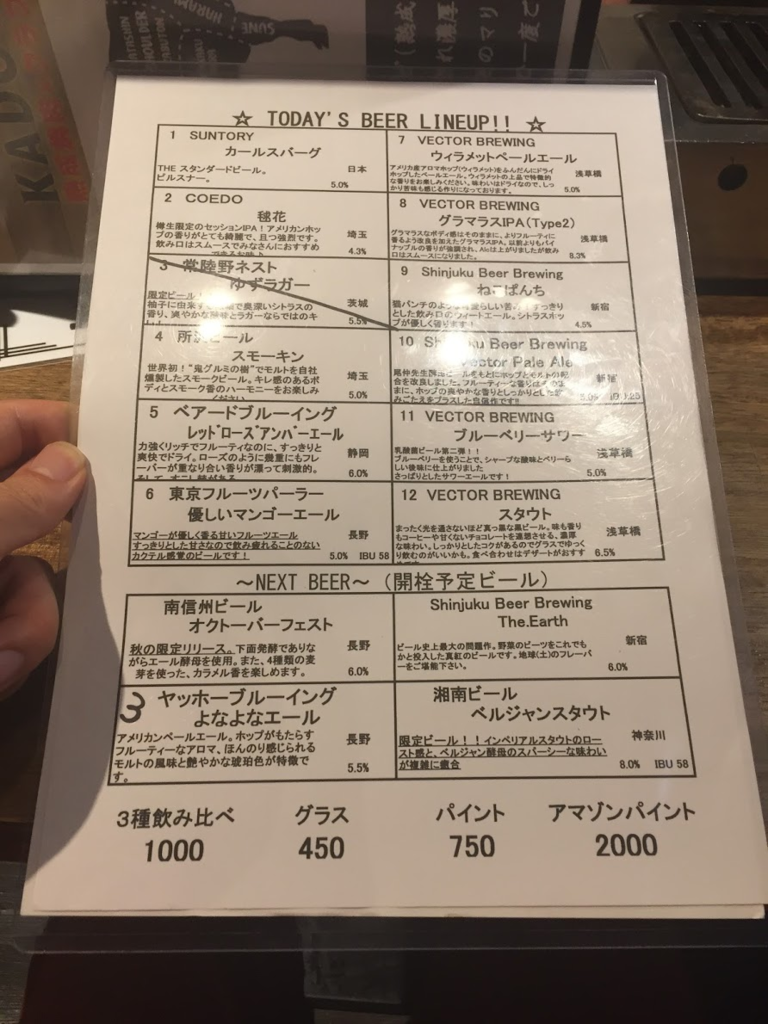 ☆ TODAY'S BEER LINEUP!! ☆
1 SUNTORY
カールスバーグ
THE スタンダードビール。
ピルスナー。
日本
5.0%
2 COEDO
毬花
樽生限定のセッションIPA!アメリカンホッ
プの香りがとても綺麗で、且つ強烈です。
飲み口はスムースでみなさんにおすすめ
埼玉
4.3%
3 常陸野ネスト
ゆずラガー
限定ビール!
香り、爽やかな ラガーならではのキ
茨城
5.5%
4 所沢ビール
スモーキン
世界初!"鬼グルミの樹"でモルトを自社
燻製したスモークビール。キレ感のあるボ
ディとスモーク香のハーモニーをお楽しみ
ください
埼玉
5.0%
5 ベアードブルーイング
レッドローズアンバーエール
力強くリッチでフルーティなのに、すっきりと
爽快でドライ。ローズのように幾重にもフレ
ーバーが重なり合い香りが漂って刺激的。
静岡
6.0%
6 東京フルーツパーラー
優しいマンゴーエール
マンゴーが優しく香る甘いフルーツエール
すっきりとした甘さなので飲み疲れることのない
カクテル感覚のビールです!
長野
5.0% IBU 58
7 VECTOR BREWING
ウィラメットペールエール
アメリカ産アロマホップ(ウィラメット)をふんだんにドライ
ホップしたペールエール。ウィラメットの上品で特徴的
な香りをお楽しみください。味わいはドライなので、しっ
かり苦味も感じる作りになっております。
浅草橋
5.0%
8 VECTOR BREWING
グラマラスIPA(Type2)
グラマラスなボディ感はそのままに、よりフルーティに
香るよう改良を加えたグラマラスIPA。以前よりもパイ
ナップルの香りが強調され、Alcは上がりましたが飲み
口はスムースになりました。
浅草橋
8.3%
9 Shinjuku Beer Brewing
ねこぱんち
猫パンチのような可愛らしい すっきり
とした飲み口のウィートエール。シトラスホッ
プが優しく香ります!
新宿
4.5%
10 Shinjuku Beer Brewing
Vector Pale Ale
合を改良しました。フルーティーな香りは
まに、ホップの爽やかな香りとしっかりとした
みごたえをプラスした自信作です!!
新宿
5.0%
11 VECTOR BREWING
ブルーベリーサワー
乳酸菌ビール第二弾!!
ブルーベリーを使うことで、シャープな酸味とベリーら
しい後味に仕上がりました
さっぱりとしたサワーエールです!
浅草橋
5.0%
12 VECTOR BREWING
スタウト
まったく光を通さないほど真っ黒な黒ビール。味も香り
もコーヒーや甘くないチョコレートを連想させる、濃厚
な味わい。しっかりとしたコクがあるのでグラスでゆっく
り飲むのがいいかも。食べ合わせはデザートがおすす
浅草橋
6.5%
~NEXT BEER~ (開栓予定ビール)
南信州ビール
オクトーバーフェスト
秋の限定リリース。下面発酵でありな
がらエール酵母を使用。また、4種類の麦
芽を使った、カラメル香を楽しめます。
長野
6.0%
Shinjuku Beer Brewing
The.Earth
ビール史上最大の問題作。野菜のビーツをこれでも
かと投入した真紅のビールです。地球(土)のフレーバ
ーをご堪能下さい。
新宿
6.0%
3 ヤッホーブルーイング
よなよなエール
アメリカンペールエール。ホップがもたらす
フルーティーなアロマ、ほんのり感じられる
モルトの風味と艶やかな琥珀色が特徴で
す。
長野
5.5%
湘南ビール
ベルジャンスタウト
限定ビール!!インペリアルスタウトのロー
スト感と、ベルジャン酵母のスパーシーな味わい
が複雑に融合
神奈川
8.0% IBU 58
3種飲み比べ グラス パイント アマゾンパイント
1000 450 750 2000